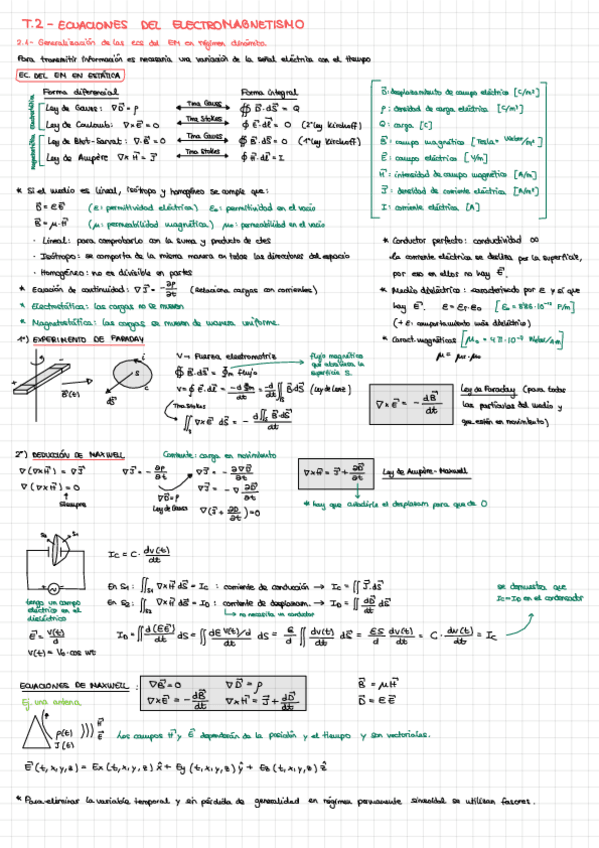 T.2 - ECUACIONES DEL ELECTROMAGNETISMO
2.1- Generalización de las ecs del EM en régimen dinámico.
Para transmitir información es necesaria una variación de la señal eléctrica con el tiempo
EC. DEL EM EN ESTÁTICA
Forma diferencial Forma integral
Electrostática
Ley de Gauss: ∇D⃗ = ρ Tma Gauss ∯ D⃗·dS⃗ = Q
Ley de Coulomb: ∇×E⃗ = 0 Tma Stokes ∮ E⃗·dl⃗ = 0 (2ª ley Kirchoff)
Magnetostática
Ley de Biot-Savart: ∇·B⃗ = 0 Tma Gauss ∯ B⃗·dS⃗ = 0 (1ª ley Kirchoff)
Ley de Ampère ∇×H⃗ = J⃗ Tma Stokes ∮ H⃗·dl⃗ = I
D⃗: desplazamiento de campo eléctrico [C/m²]
ρ: densidad de carga eléctrica [C/m³]
Q: carga [C]
B⃗: campo magnético [Tesla = Weber/m²]
E⃗: campo eléctrico [V/m]
H⃗: intensidad de campo magnético [A/m]
J⃗: densidad de corriente eléctrica [A/m²]
I: corriente eléctrica [A]
* Si el medio es lineal, isótropo y homogéneo se cumple que:
D⃗ = εE⃗ (ε: permitividad eléctrica) ε₀: permitividad en el vacío
B⃗ = μ·H⃗ (μ: permeabilidad magnética) μ₀: permeabilidad en el vacío
· Lineal: para comprobarlo con la suma y producto de ctes
· Isótropo: se comporta de la misma manera en todas las direcciones del espacio
· Homogéneo: no es divisible en partes
* Ecuación de continuidad: ∇J⃗ = -∂ρ/∂t (relaciona cargas con corrientes)
* Electrostática: las cargas no se mueven
* Magnetostática: las cargas se mueven de manera uniforme.
* Conductor perfecto: conductividad ∞
la corriente eléctrica se desliza por la superficie,
por eso en ellos no hay E⃗.
* Medio dieléctrico: caracterizado por ε y sí que
hay E⃗. ε = εr·ε₀ [ε₀ = 8'86·10⁻¹² F/m]
(+ε: comportamiento más dieléctrico)
* Caract. magnéticas [μ₀ = 4π·10⁻⁷
μ = μr·μ₀
1º) EXPERIMENTO DE FARADAY
B⃗(t) dS⃗ S C i
V → Fuerza electromotriz
∬ B⃗·dS⃗ = Φm flujo
flujo magnético que atraviesa la superficie S.
V = ∮ E⃗·dl⃗ = -dΦm/dt = -d/dt ∬ B⃗·dS⃗ (Ley de Lenz)
Tma Stokes
∬ ∇×E⃗ dS⃗ = -d∬B⃗·dS⃗/dt
∇×E⃗ = -dB⃗/dt
Ley de Faraday (para todas
las partículas del medio y
que estén en movimiento)
2º) DEDUCCIÓN DE MAXWELL Corriente: carga en movimiento
∇(∇×H⃗) = ∇J⃗ ∇J⃗ = -∂ρ/∂t ∇J⃗ = -∂∇D⃗/∂t ∇×H⃗ = J⃗ + ∂D⃗/∂t Ley de Ampère-Maxwell
∇(∇×H⃗) = 0 ∇D⃗ = ρ ∇J⃗ = -∇∂D⃗/∂t
Siempre Ley de Gauss ∇(J⃗ + ∂D⃗/∂t) = 0
* hay que añadirle el desplazam para que de 0
S₂ S₁
Ic = C·dv(t)/dt
En S₁: ∬ ∇×H⃗ dS⃗ = Ic : corriente de conducción → Ic = ∬ J⃗·dS⃗
En S₂: ∬ ∇×H⃗ dS⃗ = ID : corriente de desplazam. → ID = ∬ dD⃗/dt dS⃗
no necesita un conductor
se demuestra que
Ic = ID en el condensador
tengo un campo
eléctrico en el
dieléctrico
E⃗ = V(t)/d
V(t) = V₀·cos wt
ID = ∬ d(εE⃗)/dt dS = ∬ dεV(t)/d /dt dS = ε/d ∬ dv(t)/dt dS⃗ = εS/d dv(t)/dt = C·dv(t)/dt = Ic
ECUACIONES DE MAXWELL: ∇B⃗ = 0 ∇D⃗ = ρ
∇×E⃗ = -dB⃗/dt ∇×H⃗ = J⃗ + dD⃗/dt
B⃗ = μH⃗
D⃗ = εE⃗
Ej. una antena
ρ(t) J(t) H⃗ E⃗
Los campos H⃗ y E⃗ dependerán de la posición y el tiempo y son vectoriales.
E⃗(t,x,y,z) = Ex(t,x,y,z) x̂ + Ey(t,x,y,z) ŷ + Ez(t,x,y,z) ẑ
* Para eliminar la variable temporal y sin pérdida de generalidad en régimen permanente sinusoidal se utilizan fasores.